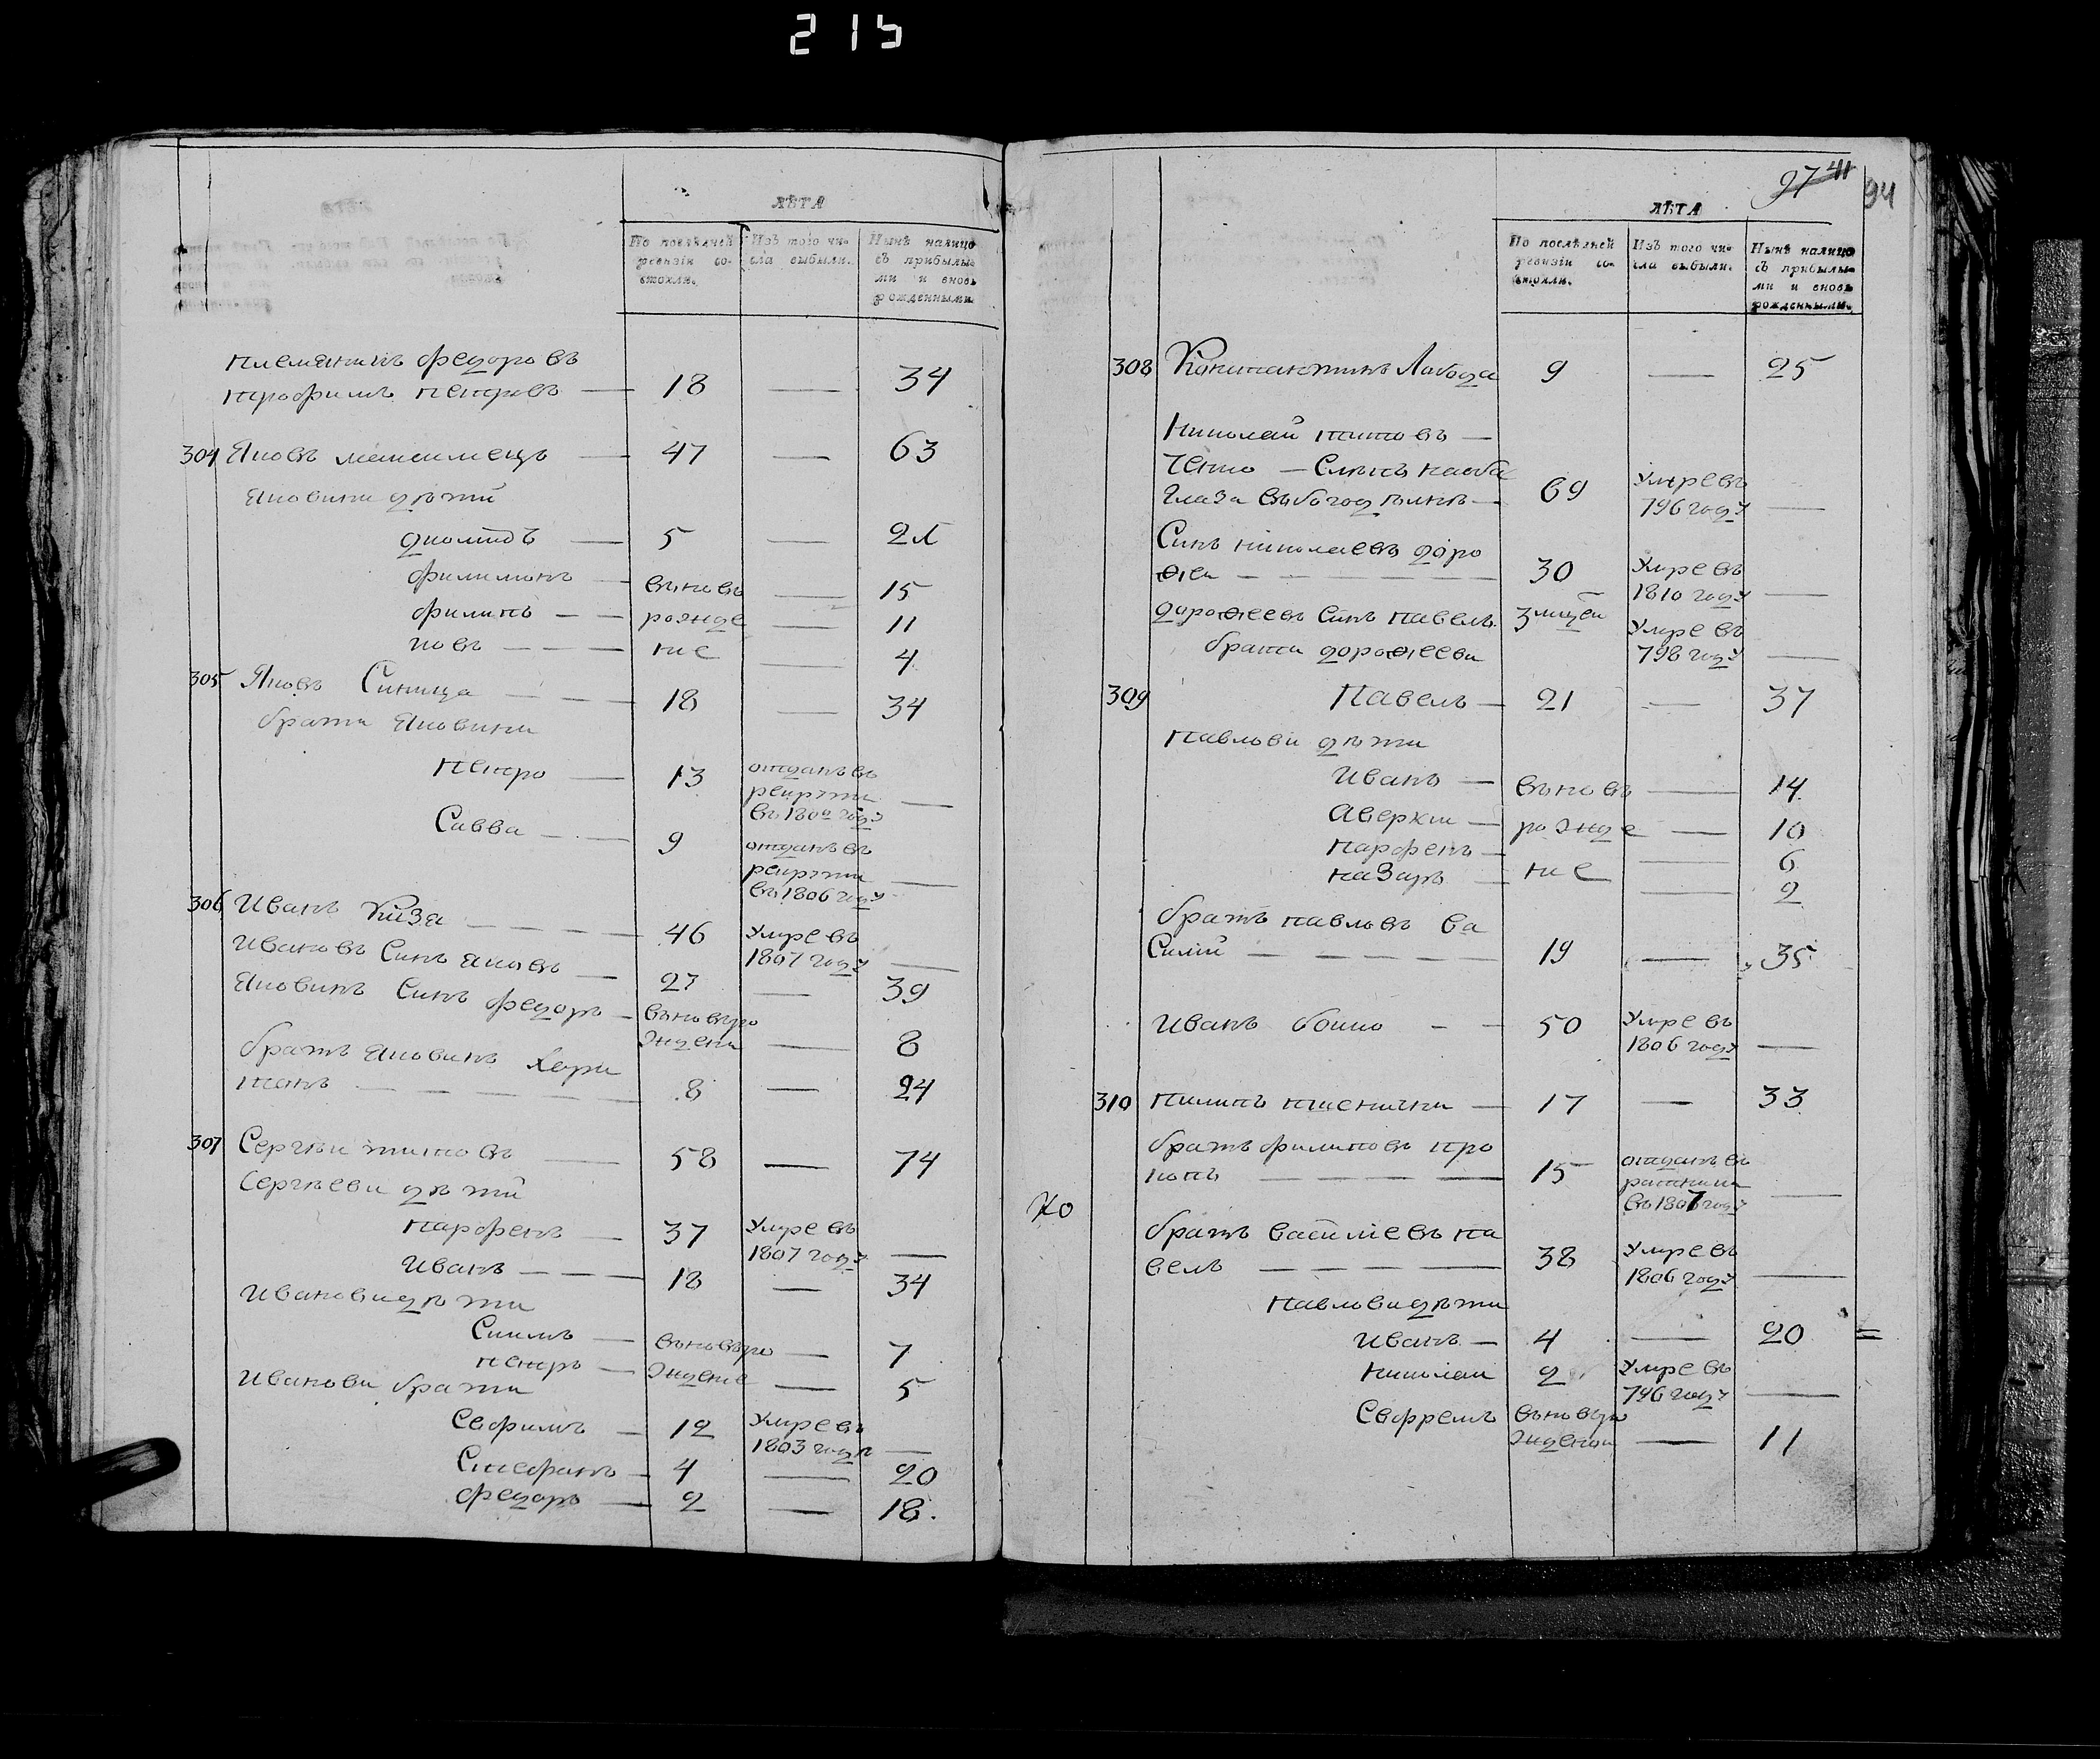 215
ЛѢТА
По послѣдней ревизіи состояли.
Изъ того числа выбыли.
Нынѣ налицо съ прибылыми и вновь рожденными.
племянникъ федоровъ
трофимъ петровъ — 18 — 34
304 Яковъ максимецъ — 47 — 63
Яковини дѣти
диомидъ — 5 — 21
филимонъ — въновь — 15
филипъ — — рожде — 11
иовъ — — — ние — 4
305 Яковъ Синица — — 18 — 34
брати Яковини
петро — 13 отданъ въ
рекруты —
въ 1802 году
Савва — — 9 отданъ въ
рекруты —
въ 1806 году
306 Иванъ Киза — — — — 46 Умре въ
1807 году —
Ивановъ Синъ Яковъ — 27 — 39
Яковинъ Синъ федоръ — въновь ро
ждени — 8
братъ Яковинъ Хари
тонъ — — — — — 8 — 24
307 Сергѣи титовъ — 58 — 74
Сергѣеви дѣти
парфенъ — 37 Умре въ
1807 году —
Иванъ — — — 18 — 34
Иванови дѣти
Симъ — въновь ро — 7
петръ — ждение — 5
Иванови брати
Евфимъ — 12 Умре въ
1803 годѣ —
Стефанъ — 4 — 20
федоръ — 2 — 18.
97 41
94
ЛѢТА
По послѣдней ревизіи состояли.
Изъ того числа выбыли.
Нынѣ налицо съ прибылыми и вновь рожденными.
308 Константинъ Лобода 9 — 25
Николай титовъ —
ченко — Слѣпъ наоба
глаза въ богодѣлнѣ — 69 Умре въ
796 году —
Синъ николаевъ доро
ѳеи — — — — — 30 Умре въ
1810 году —
дороѳеевъ Синъ павелъ 3 мцей Умре въ
798 году —
брати дороѳееви
309 Павелъ — 21 — 37
павлови дѣти
Иванъ — въновь — 14.
Аверкии — рожде — 10
парфенъ — — 6
назаръ — ние — 2
братъ павловъ ва
Силий — — — — — 19 — 35
Иванъ бойко — — 50 Умре въ
1806 году —
310 пилипъ пшенички — 17 — 33
братъ филиповъ про
копъ — — — — 15 отданъ въ
ратники
въ 1807 году —
братъ василиевъ па
велъ — — — — — 38 Умре въ
1806 году —
павлови дѣти
Иванъ — 4 — 20 =
николаи 2 Умре въ
796 году —
Евфремъ въновь ро
жденои — 11